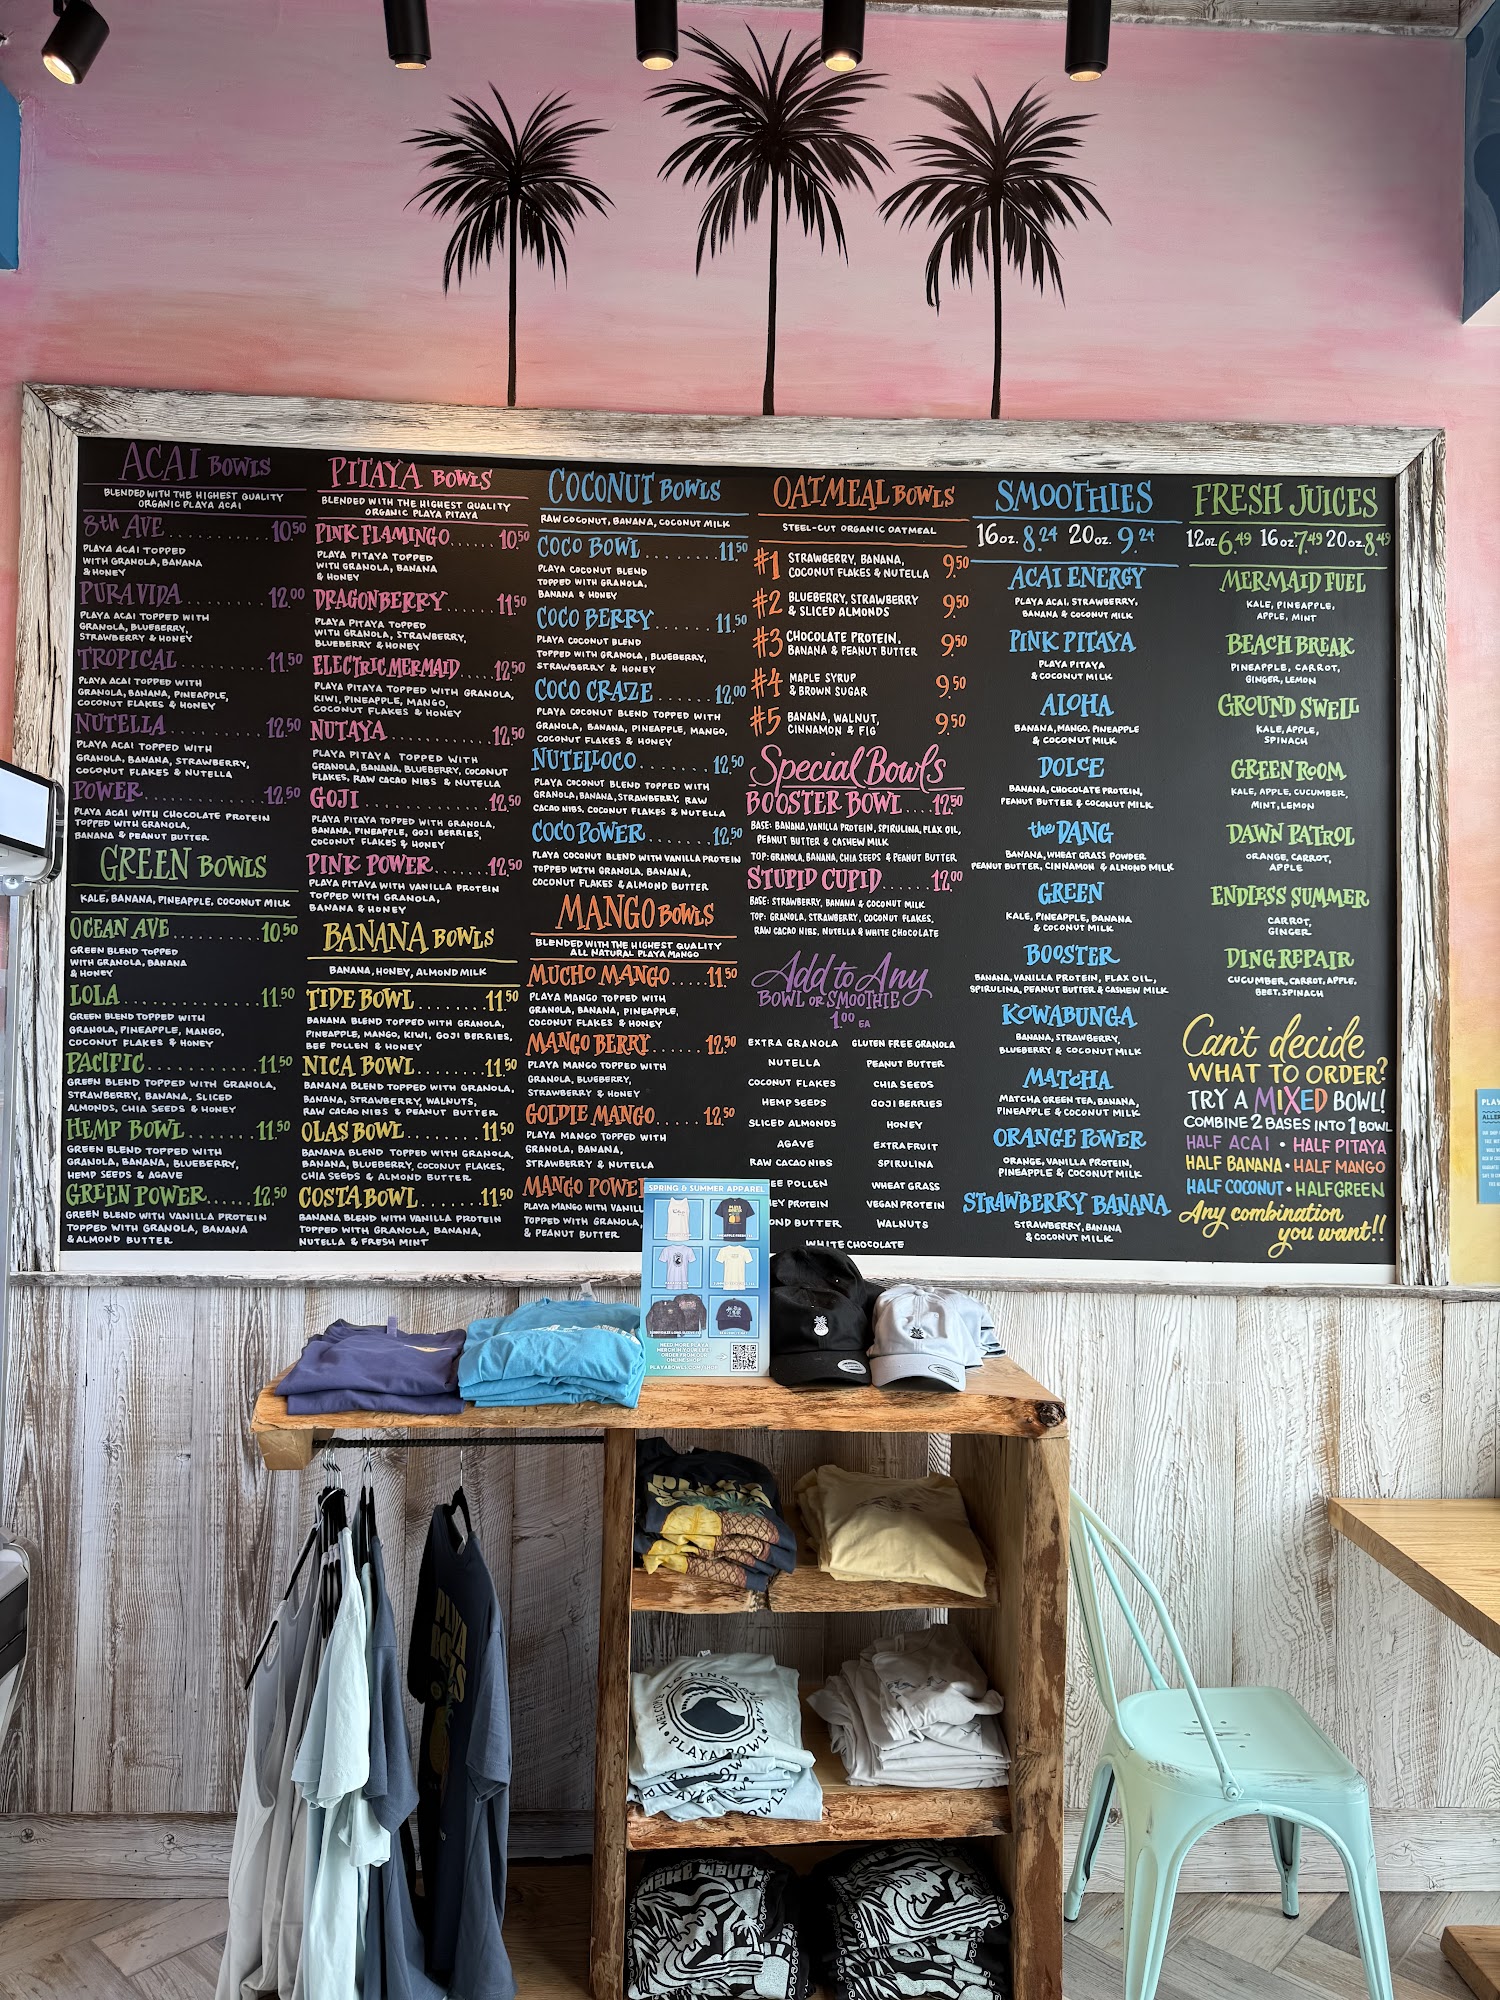 ACAI BOWLS
BLENDED WITH THE HIGHEST QUALITY
ORGANIC PLAYA ACAI
8th AVE ........ 10.50
PLAYA ACAI TOPPED
WITH GRANOLA, BANANA
& HONEY
PURA VIDA ........ 12.00
PLAYA ACAI TOPPED WITH
GRANOLA, BLUEBERRY,
STRAWBERRY & HONEY
TROPICAL ........ 11.50
PLAYA ACAI TOPPED WITH
GRANOLA, BANANA, PINEAPPLE,
COCONUT FLAKES & HONEY
NUTELLA ........ 12.50
PLAYA ACAI TOPPED WITH
GRANOLA, BANANA, STRAWBERRY,
COCONUT FLAKES & NUTELLA
POWER ........ 12.50
PLAYA ACAI WITH CHOCOLATE PROTEIN
TOPPED WITH GRANOLA,
BANANA & PEANUT BUTTER
GREEN BOWLS
KALE, BANANA, PINEAPPLE, COCONUT MILK
OCEAN AVE ........ 10.50
GREEN BLEND TOPPED
WITH GRANOLA, BANANA
& HONEY
LOLA ........ 11.50
GREEN BLEND TOPPED WITH
GRANOLA, PINEAPPLE, MANGO,
COCONUT FLAKES & HONEY
PACIFIC ........ 11.50
GREEN BLEND TOPPED WITH GRANOLA,
STRAWBERRY, BANANA, SLICED
ALMONDS, CHIA SEEDS & HONEY
HEMP BOWL ........ 11.50
GREEN BLEND TOPPED WITH
GRANOLA, BANANA, BLUEBERRY,
HEMP SEEDS & AGAVE
GREEN POWER ..... 12.50
GREEN BLEND WITH VANILLA PROTEIN
TOPPED WITH GRANOLA, BANANA
& ALMOND BUTTER
PITAYA BOWLS
BLENDED WITH THE HIGHEST QUALITY
ORGANIC PLAYA PITAYA
PINK FLAMINGO ..... 10.50
PLAYA PITAYA TOPPED
WITH GRANOLA, BANANA
& HONEY
DRAGONBERRY ..... 11.50
PLAYA PITAYA TOPPED
WITH GRANOLA, STRAWBERRY,
BLUEBERRY & HONEY
ELECTRIC MERMAID .... 12.50
PLAYA PITAYA TOPPED WITH GRANOLA,
KIWI, PINEAPPLE, MANGO,
COCONUT FLAKES & HONEY
NUTAYA ........ 12.50
PLAYA PITAYA TOPPED WITH
GRANOLA, BANANA, BLUEBERRY, COCONUT
FLAKES, RAW CACAO NIBS & NUTELLA
GOJI ........ 12.50
PLAYA PITAYA TOPPED WITH GRANOLA,
BANANA, PINEAPPLE, GOJI BERRIES,
COCONUT FLAKES & HONEY
PINK POWER ..... 12.50
PLAYA PITAYA WITH VANILLA PROTEIN
TOPPED WITH GRANOLA,
BANANA & HONEY
BANANA BOWLS
BANANA, HONEY, ALMOND MILK
TIDE BOWL ........ 11.50
BANANA BLEND TOPPED WITH GRANOLA,
PINEAPPLE, MANGO, KIWI, GOJI BERRIES,
BEE POLLEN & HONEY
NICA BOWL ........ 11.50
BANANA BLEND TOPPED WITH GRANOLA,
BANANA, STRAWBERRY, WALNUTS,
RAW CACAO NIBS & PEANUT BUTTER
OLAS BOWL ........ 11.50
BANANA BLEND TOPPED WITH GRANOLA,
BANANA, BLUEBERRY, COCONUT FLAKES,
CHIA SEEDS & ALMOND BUTTER
COSTA BOWL ...... 11.50
BANANA BLEND WITH VANILLA PROTEIN
TOPPED WITH GRANOLA, BANANA,
NUTELLA & FRESH MINT
COCONUT BOWLS
RAW COCONUT, BANANA, COCONUT MILK
COCO BOWL ........ 11.50
PLAYA COCONUT BLEND
TOPPED WITH GRANOLA,
BANANA & HONEY
COCO BERRY ...... 11.50
PLAYA COCONUT BLEND
TOPPED WITH GRANOLA, BLUEBERRY,
STRAWBERRY & HONEY
COCO CRAZE ...... 12.00
PLAYA COCONUT BLEND TOPPED WITH
GRANOLA, BANANA, PINEAPPLE, MANGO,
COCONUT FLAKES & HONEY
NUTELLOCO ....... 12.50
PLAYA COCONUT BLEND TOPPED WITH
GRANOLA, BANANA, STRAWBERRY, RAW
CACAO NIBS, COCONUT FLAKES & NUTELLA
COCO POWER ...... 12.50
PLAYA COCONUT BLEND WITH VANILLA PROTEIN
TOPPED WITH GRANOLA, BANANA,
COCONUT FLAKES & ALMOND BUTTER
MANGO BOWLS
BLENDED WITH THE HIGHEST QUALITY
ALL NATURAL PLAYA MANGO
MUCHO MANGO .... 11.50
PLAYA MANGO TOPPED WITH
GRANOLA, BANANA, PINEAPPLE,
COCONUT FLAKES & HONEY
MANGO BERRY ...... 12.50
PLAYA MANGO TOPPED WITH
GRANOLA, BLUEBERRY,
STRAWBERRY & HONEY
GOLDIE MANGO ..... 12.50
PLAYA MANGO TOPPED WITH
GRANOLA, BANANA,
STRAWBERRY & NUTELLA
MANGO POWE
PLAYA MANGO WITH VANILL
TOPPED WITH GRANOLA,
& PEANUT BUTTER
OATMEAL BOWLS
STEEL-CUT ORGANIC OATMEAL
#1 STRAWBERRY, BANANA, 9.50
COCONUT FLAKES & NUTELLA
#2 BLUEBERRY, STRAWBERRY 9.50
& SLICED ALMONDS
#3 CHOCOLATE PROTEIN, 9.50
BANANA & PEANUT BUTTER
#4 MAPLE SYRUP 9.50
& BROWN SUGAR
#5 BANANA, WALNUT, 9.50
CINNAMON & FIG
Special Bowls
BOOSTER BOWL .... 12.50
BASE: BANANA, VANILLA PROTEIN, SPIRULINA, FLAX OIL,
PEANUT BUTTER & CASHEW MILK
TOP: GRANOLA, BANANA, CHIA SEEDS & PEANUT BUTTER
STUPID CUPID ...... 12.00
BASE: STRAWBERRY, BANANA & COCONUT MILK
TOP: GRANOLA, STRAWBERRY, COCONUT FLAKES,
RAW CACAO NIBS, NUTELLA & WHITE CHOCOLATE
Add to Any
BOWL OR SMOOTHIE
1.00 EA
EXTRA GRANOLA GLUTEN FREE GRANOLA
NUTELLA PEANUT BUTTER
COCONUT FLAKES CHIA SEEDS
HEMP SEEDS GOJI BERRIES
SLICED ALMONDS HONEY
AGAVE EXTRA FRUIT
RAW CACAO NIBS SPIRULINA
EE POLLEN WHEAT GRASS
EY PROTEIN VEGAN PROTEIN
OND BUTTER WALNUTS
WHITE CHOCOLATE
SMOOTHIES
16oz. 8.24 20oz. 9.24
ACAI ENERGY
PLAYA ACAI, STRAWBERRY,
BANANA & COCONUT MILK
PINK PITAYA
PLAYA PITAYA
& COCONUT MILK
ALOHA
BANANA, MANGO, PINEAPPLE
& COCONUT MILK
DOLCE
BANANA, CHOCOLATE PROTEIN,
PEANUT BUTTER & COCONUT MILK
the DANG
BANANA, WHEAT GRASS POWDER
PEANUT BUTTER, CINNAMON & ALMOND MILK
GREEN
KALE, PINEAPPLE, BANANA
& COCONUT MILK
BOOSTER
BANANA, VANILLA PROTEIN, FLAX OIL,
SPIRULINA, PEANUT BUTTER & CASHEW MILK
KOWABUNGA
BANANA, STRAWBERRY,
BLUEBERRY & COCONUT MILK
MATCHA
MATCHA GREEN TEA, BANANA,
PINEAPPLE & COCONUT MILK
ORANGE POWER
ORANGE, VANILLA PROTEIN,
PINEAPPLE & COCONUT MILK
STRAWBERRY BANANA
STRAWBERRY, BANANA
& COCONUT MILK
FRESH JUICES
12oz. 6.49 16oz. 7.49 20oz. 8.49
MERMAID FUEL
KALE, PINEAPPLE,
APPLE, MINT
BEACH BREAK
PINEAPPLE, CARROT,
GINGER, LEMON
GROUND SWELL
KALE, APPLE,
SPINACH
GREEN ROOM
KALE, APPLE, CUCUMBER,
MINT, LEMON
DAWN PATROL
ORANGE, CARROT,
APPLE
ENDLESS SUMMER
CARROT,
GINGER
DING REPAIR
CUCUMBER, CARROT, APPLE,
BEET, SPINACH
Can't decide
WHAT TO ORDER?
TRY A MIXED BOWL!
COMBINE 2 BASES INTO 1 BOWL
HALF ACAI • HALF PITAYA
HALF BANANA • HALF MANGO
HALF COCONUT • HALF GREEN
Any combination
you want!!
SPRING & SUMMER APPAREL
NEED MORE PLAYA
MERCH IN YOUR LIFE?
ORDER FROM OUR
ONLINE SHOP
PLAYABOWLS.COM/SHOP
WELCOME TO PINEAPPLELAND
PLAYA BOWLS